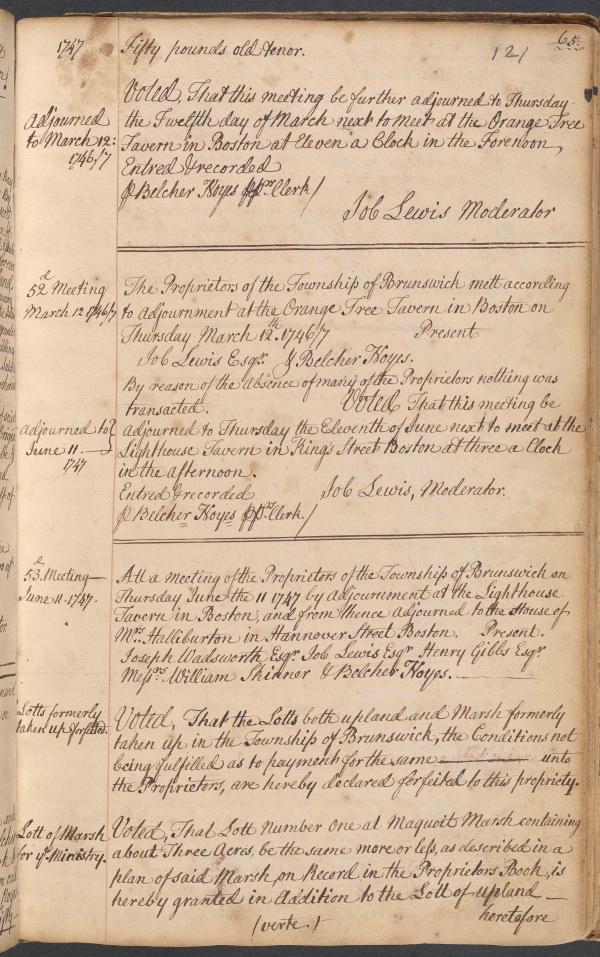 65.
121
1747
Fifty pounds old tenor.
Voted, That this meeting be further adjourned to Thursday
Adjourned
to March 12:
1746/7
the Twelfth day of March next to meet at the Orange Tree
Tavern in Boston at Eleven a Clock in the Forenoon,
Entred & recorded
p Belcher Noyes Clerk/
Job Lewis Moderator
52d Meeting
March 12 1746/7
The Proprietors of the Township of Brunswick mett according
to Adjournment at the Orange Tree Tavern in Boston on
Thursday March 12th. 1746/7 Present
Job Lewis Esqr. & Belcher Noyes.
By reason of the Absence of many of the Proprietors nothing was
transacted. Voted That this meeting be
Adjourned to
June 11.
1747
adjourned to Thursday the Eleventh of June next to meet at the
Lighthouse Tavern in King's Street Boston at three a Clock
in the afternoon.
Entred & recorded Job Lewis, Moderator.
p Belcher Noyes Clerk./
53.d Meeting
June 11. 1747.
Att a meeting of the Proprietors of the Township of Brunswick on
Thursday June the 11 1747 by Adjournment at the Lighthouse
Tavern in Boston, and from thence adjourned to the House of
Mrs. Halliburton in Hannover Street Boston. Present.
Joseph Wadsworth Esqr. Job Lewis Esqr Henry Gibbs Esqr
Messrs. William Skinner & Belcher Noyes.
Lotts formerly
taken up forfitted.
Voted, That the Lotts both upland and Marsh formerly
taken up in the Township of Brunswick, the Conditions not
being fulfilled as to payment for the same unto
the Proprietors, are hereby declared forfeited to this propriety.
Lott of Marsh
for ye Ministry.
Voted, That Lott Number One at Maquoit Marsh containing
about Three Acres, be the same more or less, as described in a
plan of said Marsh, on Record in the Proprietors Book, is
hereby granted in Addition to the Lott of upland
heretofore
(verte.)